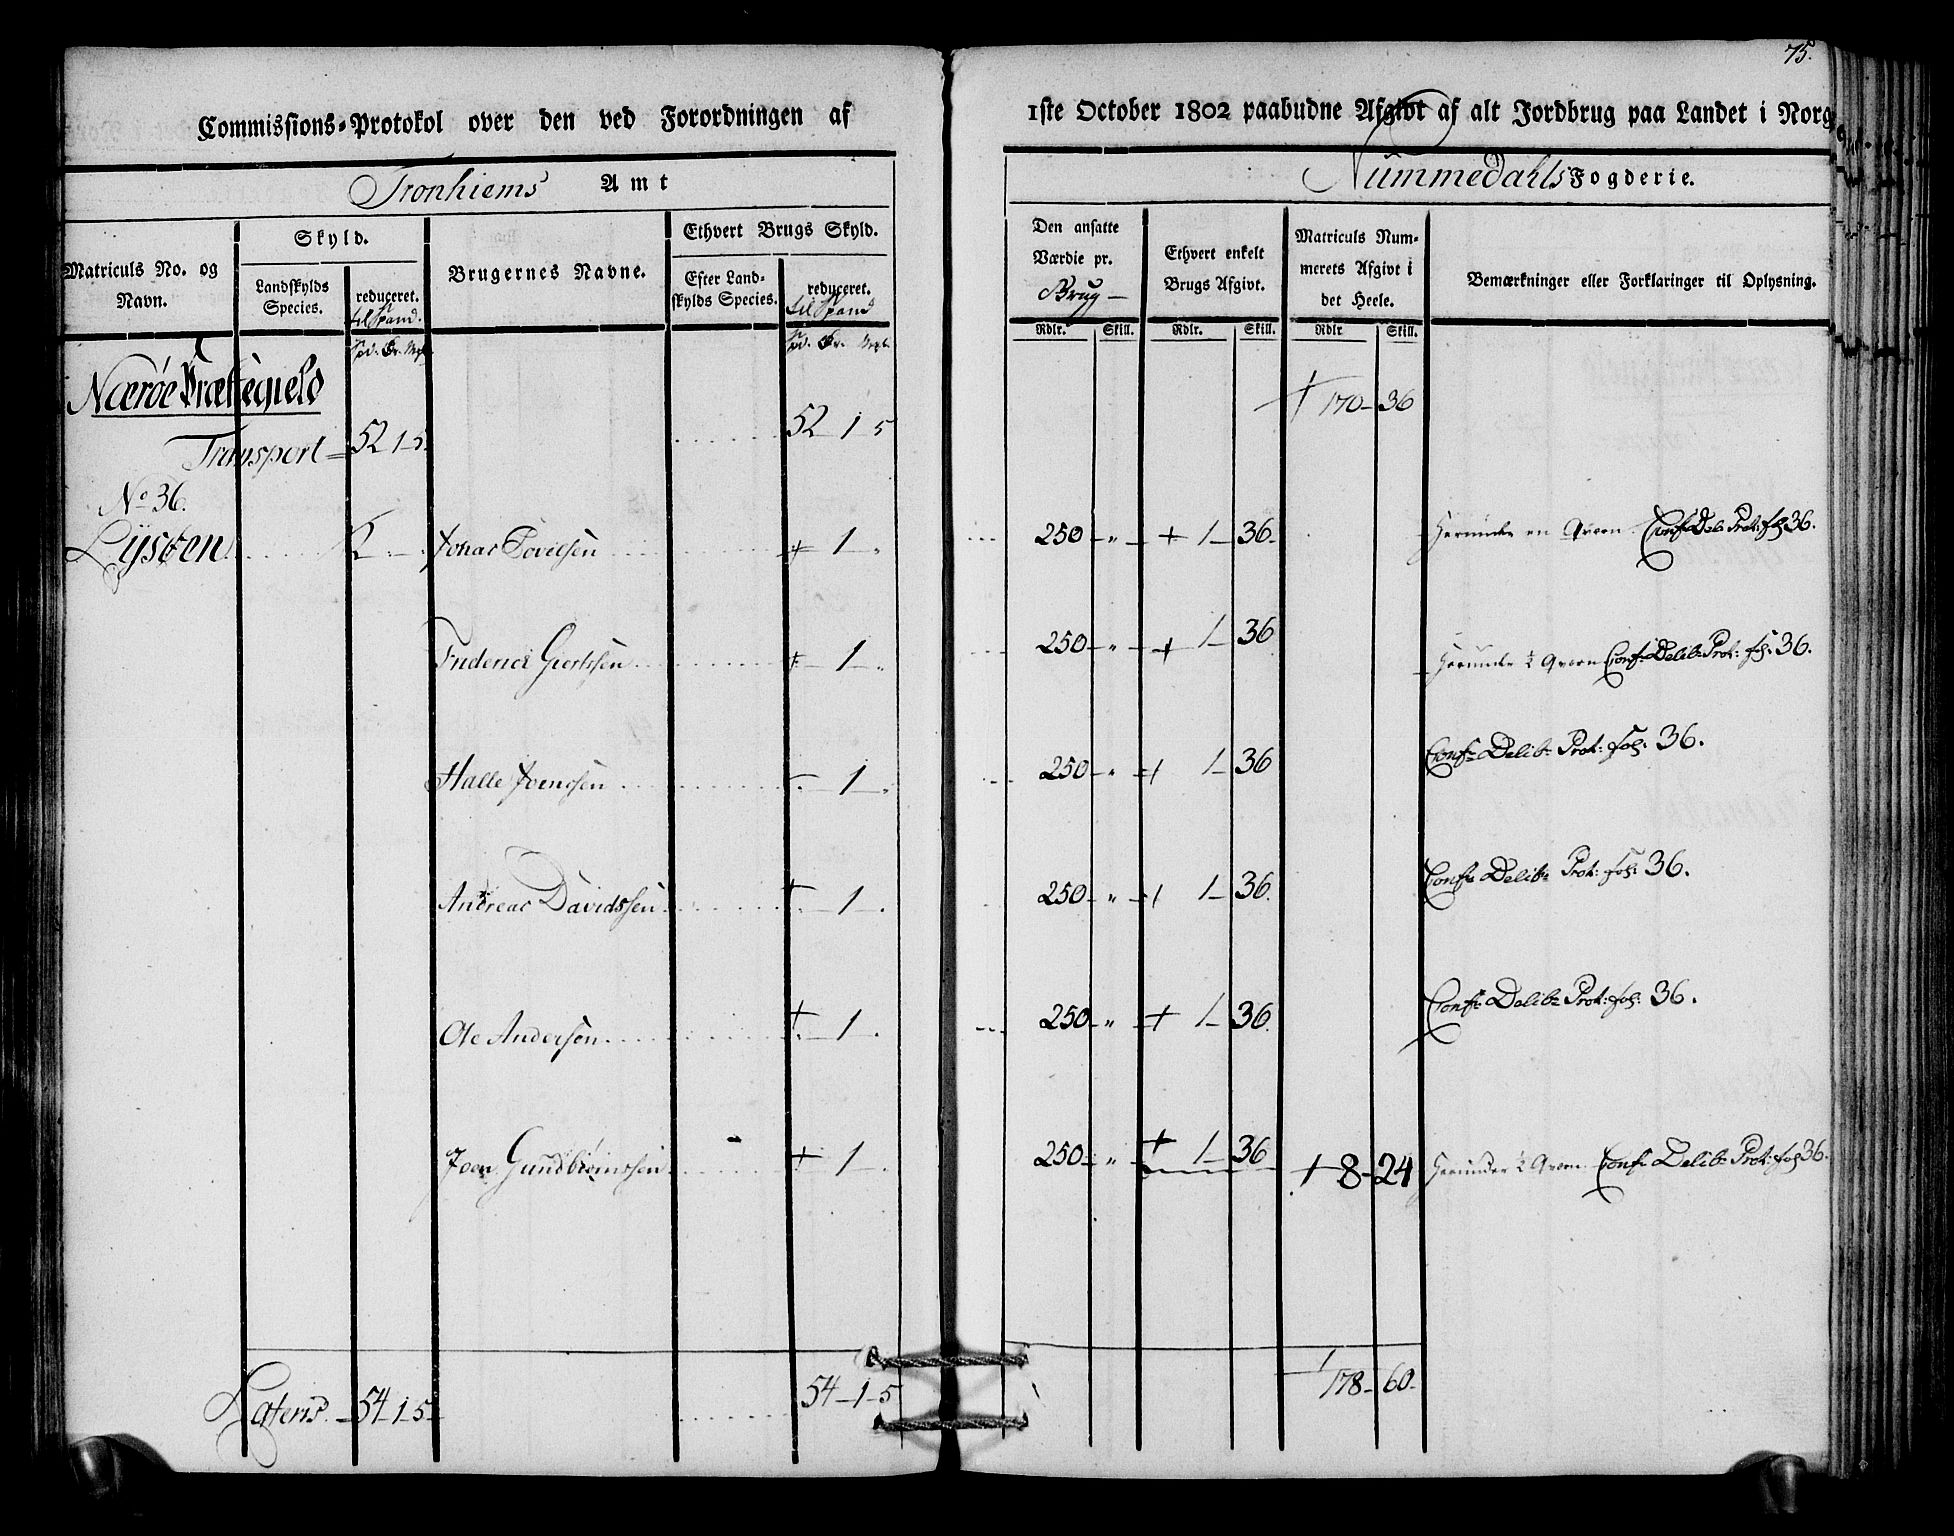 75.
Commissions-Protokol over den ved Forordningen af 1ste October 1802 paabudne Afgivt af alt Jordbrug paa Landet i Norg
Tronhiems Amt Nummedahls Fogderie.
Matriculs No. og Navn.
Skyld.
Landskylds Species.
reduceret. til Spand.
Brugernes Navne.
Ethvert Brugs Skyld.
Efter Landskylds Species.
reduceret. til Spand
Den ansatte Værdie pr. Brug
Ethvert enkelt Brugs Afgivt.
Matriculs Nummerets Afgivt i det Heele.
Bemærkninger eller Forklaringer til Oplysning.
Rdlr. Skill. Rdlr. Skill. Rdlr Skill.
Nærøe Præstegield
Transport 52 1 5. 52 1 5 170 36
No 36.
Lysøen 2 Jonas Tovelsen 1 250 " 1 36 Herunder en Qvern Conf Delib Prot: fol 36.
Friderich Giertssen 1 250 " 1 36 Herunder ½ Qvern Conf: Delib: Prot: fol: 36.
Halle Joenssen 1 250 " 1 36 Conf: Delib: Prot: Fol: 36.
Andreas Davidssen 1 250 " 1 36. Conf: Delib: Prot: fol: 36.
Ole Andersen 1 250 " 1 36. Conf: Delib: Prot: fol: 36.
Joen Gundbiørnssen 1 250 " 1 36 8 24 Herunder ½ Qvern Conf: Delib: Prot: fol 36.
Lateris 54 1 5 54 1 5 178 60